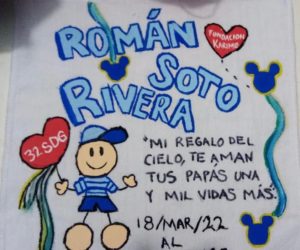 ROMÁN
SOTO
RIVERA
FUNDACIÓN
KARIMO
32 SDG
"MI REGALO DEL
CIELO, TE AMAN
TUS PAPÁS UNA
Y MIL VIDAS MÁS."
18/MAR/22
AL